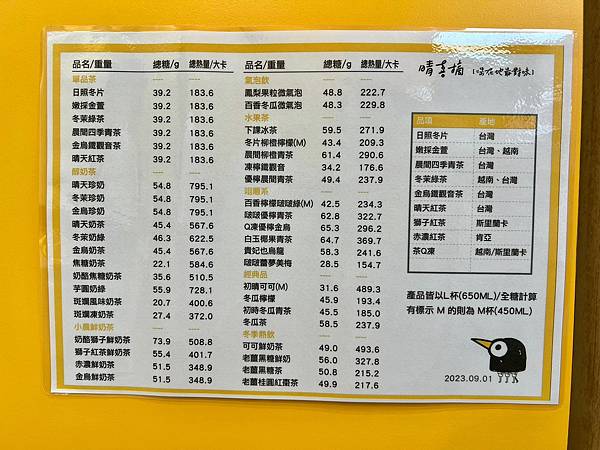 品名/重量 總糖/g 總熱量/大卡
單品茶 ---- ----
日照冬片 39.2 183.6
嫩採金萱 39.2 183.6
冬茉綠茶 39.2 183.6
晨間四季青茶 39.2 183.6
金烏鐵觀音茶 39.2 183.6
晴天紅茶 39.2 183.6
醇奶茶 ---- ----
晴天珍奶 54.8 795.1
冬茉珍奶 54.8 795.1
金烏珍奶 54.8 795.1
晴天奶茶 45.4 567.6
冬茉奶綠 46.3 622.5
金烏奶茶 45.4 567.6
焦糖奶茶 22.1 584.6
奶酷焦糖奶茶 35.6 510.5
芋圓奶綠 55.9 728.1
斑斕風味奶茶 20.7 400.6
斑斕凍奶茶 27.4 372.0
小農鮮奶茶 ---- ----
奶酷獅子鮮奶茶 73.9 508.8
獅子紅茶鮮奶茶 55.4 401.7
赤濃鮮奶茶 51.5 348.9
金烏鮮奶茶 51.5 348.9
品名/重量 總糖/g 總熱量/大卡
氣泡飲 ---- ----
鳳梨果粒微氣泡 48.8 222.7
百香冬瓜微氣泡 48.3 229.8
水果茶 ---- ----
下課冰茶 59.5 271.9
冬片柳橙檸檬(M) 43.4 209.3
晨間柳橙青茶 61.4 290.6
凍檸鐵觀音 34.2 176.6
優檸晨間青茶 49.4 237.9
咀嚼茶 ---- ----
百香檸檬啵啵綠(M) 42.5 234.3
啵啵優檸青茶 62.8 322.7
Q凍優檸金烏 65.3 296.2
白玉椰果青茶 64.7 369.7
貴妃也烏龍 58.3 241.6
啵啵蘿夢美梅 28.5 154.7
經典品 ---- ----
初晴可可(M) 31.6 489.3
冬瓜檸檬 45.9 193.4
初時冬瓜青茶 45.5 185.0
冬瓜茶 58.5 237.9
冬季熱飲 ---- ----
可可鮮奶茶 49.0 493.6
老薑黑糖鮮奶 56.0 327.8
老薑黑糖茶 50.8 215.2
老薑桂圓紅棗茶 49.9 217.6
晴喜楠
品項 產地
日照冬片 台灣
嫩採金萱 台灣、越南
晨間四季青茶 台灣
冬茉綠茶 越南、台灣
金烏鐵觀音茶 台灣
晴天紅茶 台灣
獅子紅茶 斯里蘭卡
赤濃紅茶 肯亞
茶Q凍 越南/斯里蘭卡
產品皆以L杯(650ML)/全糖計算
有標示 M 的則為 M杯(450ML)
2023.09.01